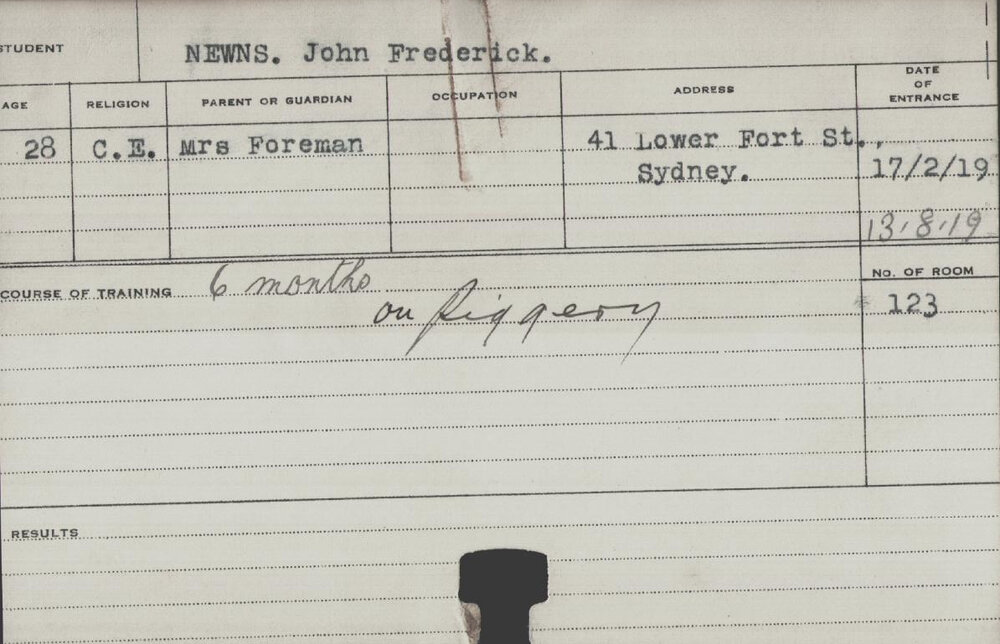 STUDENT NEWNS. John Frederick.
AGE RELIGION PARENT OR GUARDIAN OCCUPATION ADDRESS DATE OF ENTRANCE
28 C.E. Mrs Foreman 41 Lower Fort St.,
Sydney. 17/2/19
13.8.19
COURSE OF TRAINING 6 months No. OF ROOM
on Piggery 123
RESULTS